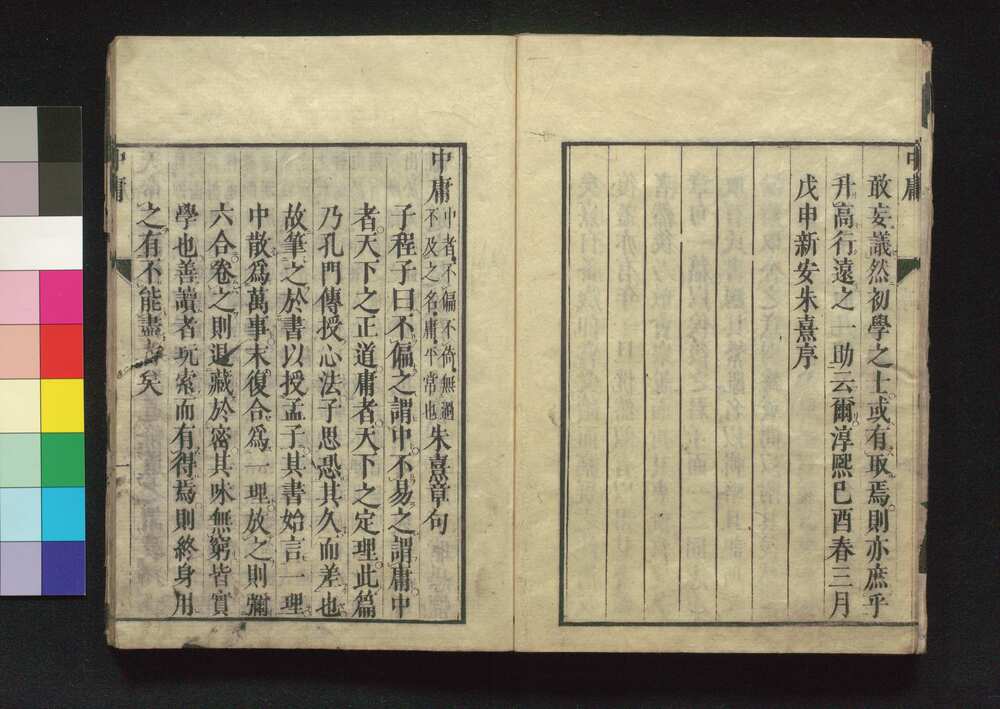 中庸
敢妄議然初學之士或有取焉則亦庶乎
升高行遠之一助云爾淳熙己酉春三月
戊申新安朱熹序
中庸中者不偏不倚無過不及之名庸平常也朱熹章句
子程子曰不偏之謂中不易之謂庸中
者天下之正道庸者天下之定理此篇
乃孔門傳授心法子思恐其久而差也
故筆之於書以授孟子其書始言一理
中散爲萬事末復合爲一理放之則彌
六合卷之則退藏於密其味無窮皆實
學也善讀者玩索而有得焉則終身用
之有不能盡者矣
中庸
一